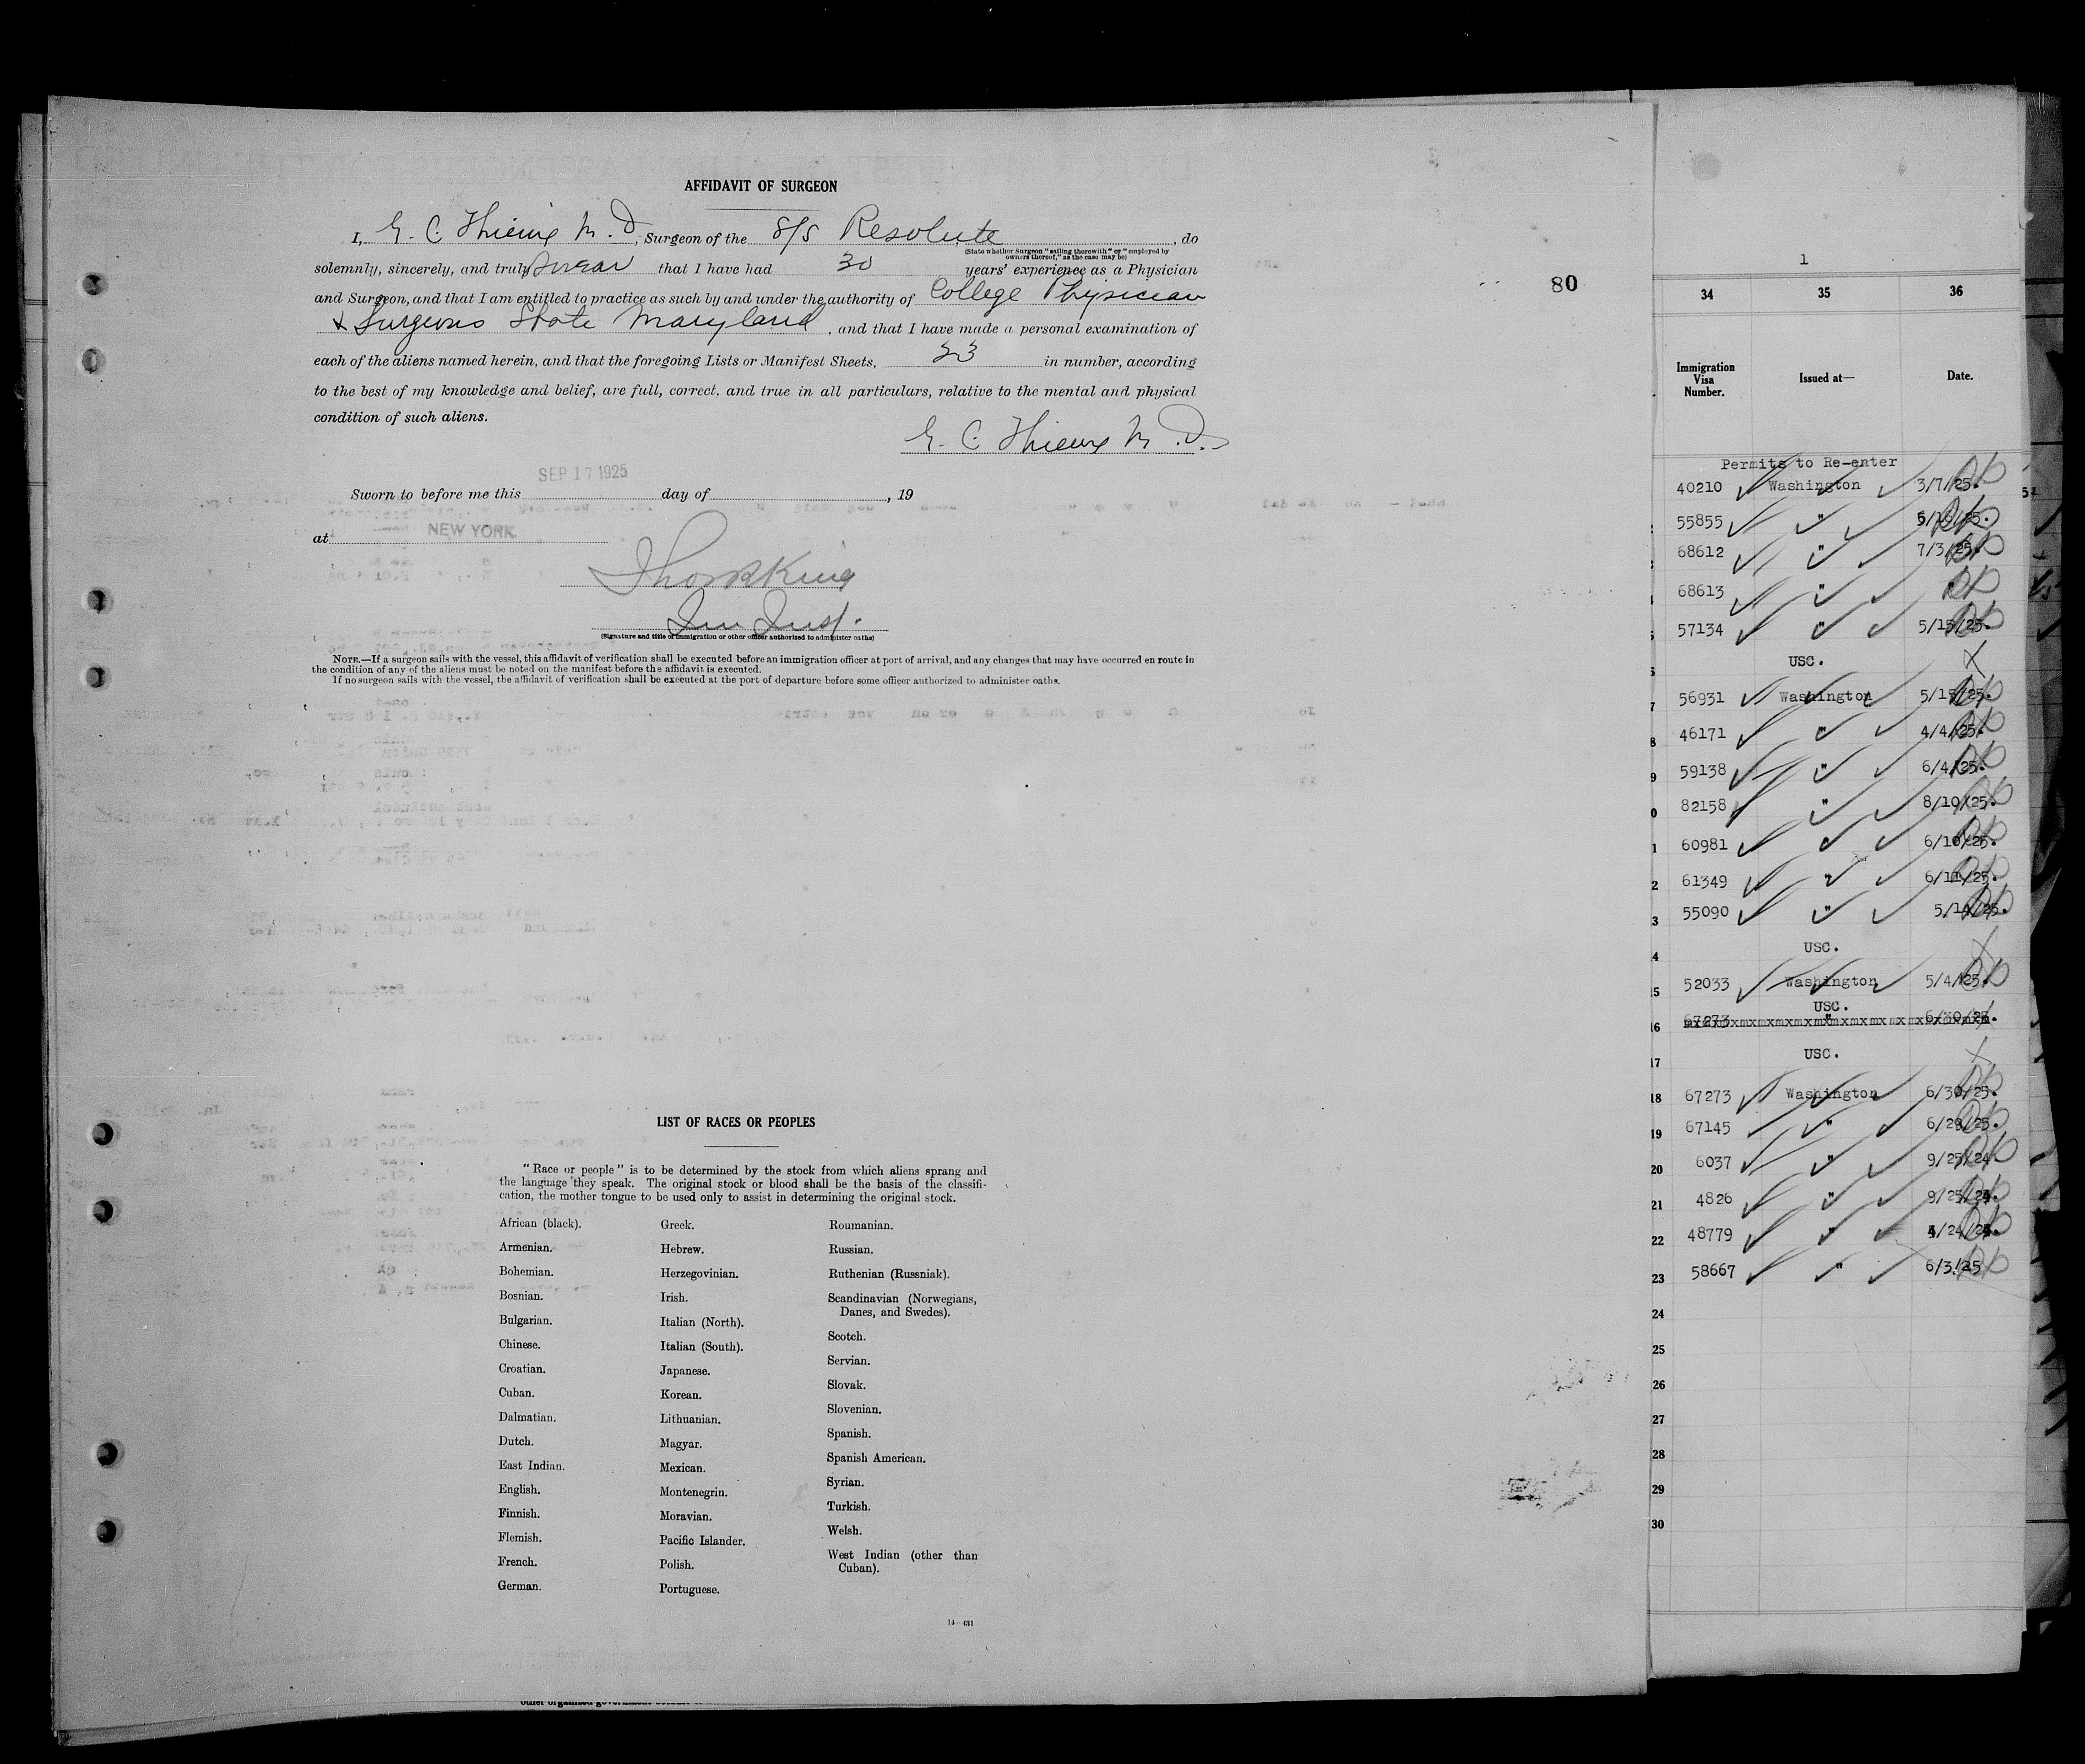 AFFIDAVIT OF SURGEON
I, G. C. M. D., Surgeon of the S/S Resolute, do
(State whether Surgeon "sailing therewith" or "employed by
owners thereof," as the case may be)
solemnly, sincerely, and truly swear that I have had 30 years' experience as a Physician
and Surgeon, and that I am entitled to practice as such by and under the authority of College Physician
& Surgeons State Maryland, and that I have made a personal examination of
each of the aliens named herein, and that the foregoing Lists or Manifest Sheets, 23 in number, according
to the best of my knowledge and belief, are full, correct, and true in all particulars, relative to the mental and physical
condition of such aliens.
G. C. M. D.
SEP 17 1925
Sworn to before me this day of , 19
at NEW YORK
King
Imm Insp.
(Signature and title of immigration or other officer authorized to administer oaths)
NOTE.—If a surgeon sails with the vessel, this affidavit of verification shall be executed before an immigration officer at port of arrival, and any changes that may have occurred en route in
the condition of any of the aliens must be noted on the manifest before the affidavit is executed.
If no surgeon sails with the vessel, the affidavit of verification shall be executed at the port of departure before some officer authorized to administer oaths.
80
LIST OF RACES OR PEOPLES
"Race or people" is to be determined by the stock from which aliens sprang and
the language they speak. The original stock or blood shall be the basis of the classifi-
cation, the mother tongue to be used only to assist in determining the original stock.
African (black).
Armenian.
Bohemian.
Bosnian.
Bulgarian.
Chinese.
Croatian.
Cuban.
Dalmatian.
Dutch.
East Indian.
English.
Finnish.
Flemish.
French.
German.
Greek.
Hebrew.
Herzegovinian.
Irish.
Italian (North).
Italian (South).
Japanese.
Korean.
Lithuanian.
Magyar.
Mexican.
Montenegrin.
Moravian.
Pacific Islander.
Polish.
Portuguese.
Roumanian.
Russian.
Ruthenian (Russniak).
Scandinavian (Norwegians,
Danes, and Swedes).
Scotch.
Servian.
Slovak.
Slovenian.
Spanish.
Spanish American.
Syrian.
Turkish.
Welsh.
West Indian (other than
Cuban).
14—431
1
34 35 36
Immigration
Visa
Number.
Issued at—
Date.
Permits to Re-enter
40210 Washington 3/7/25.
55855 " 5/16/25.
68612 " 7/3/25.
68613 " "
57134 " 5/15/25.
USC.
7 56931 Washington 5/15/25.
8 46171 " 4/4/25.
9 59138 " 6/4/25.
0 82158 " 8/10/25.
1 60981 " 6/10/25.
2 61349 " 6/11/25.
3 55090 " 5/14/25.
4 USC.
5 52033 Washington 5/4/25.
USC.
16 67273 " 6/30/25.
17 USC.
18 67273 Washington 6/30/25.
19 67145 " 6/29/25.
20 6037 " 9/25/24.
21 4826 " 9/25/24.
22 48779 " 4/24/25.
23 58667 " 6/3/25
24
25
26
27
28
29
30